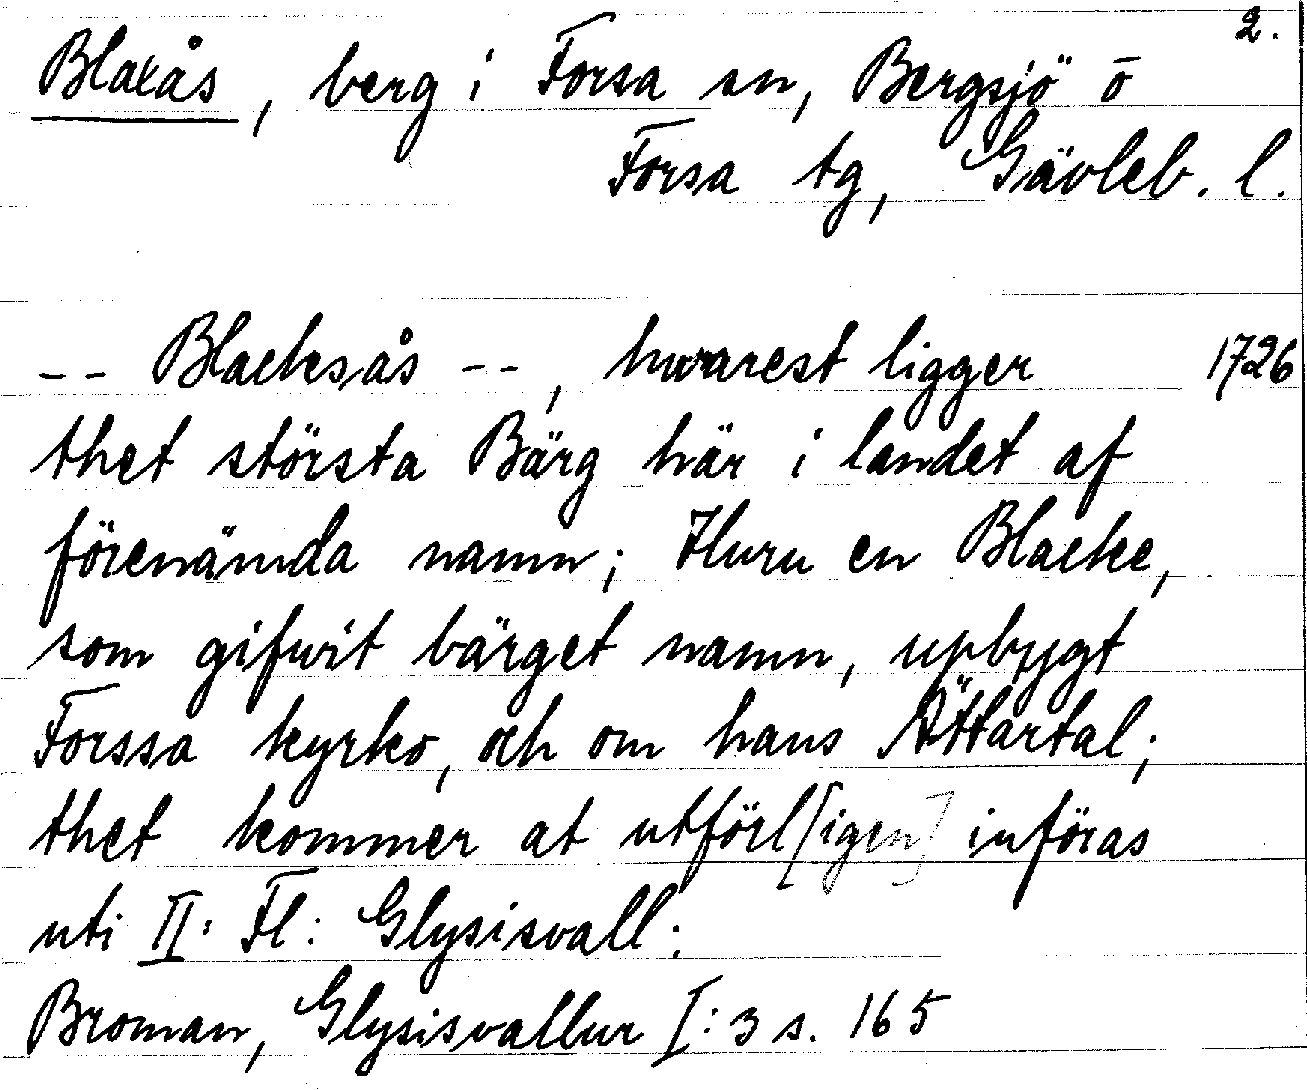 2.
Blaxås, berg i Forsa sn, Bergsjö o
Forsa tg, Gävleb. l.
-- Blacksås --, hwarest ligger 1726
thet största Bärg här i landet af
förenämda namn; Huru en Blacke,
som gifwit bärget namn, upbygt
Forssa kyrko, och om hans Ättartal;
thet kommer at utförl[igen] införas
uti II: Fl: Glysisvall:
Broman, Glysisvallur I:3 s. 165